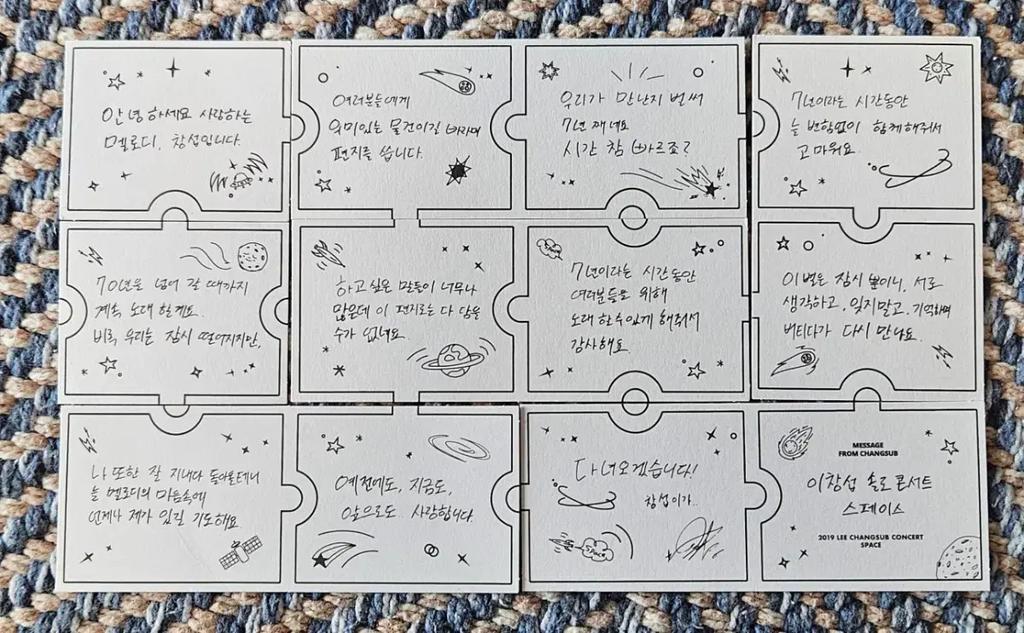 안녕하세요 사랑하는
멜로디, 창섭입니다.
여러분들에게
의미있는 물건이길 바라며
편지를 씁니다.
우리가 만난지 벌써
7년 째네요
시간 참 빠르죠?
7년이라는 시간동안
늘 변함없이 함께해주셔서
고마워요.
70년을 넘어 갈 때까지
계속 노래 할게요.
비록 우리는 잠시 떨어지지만,
하고 싶은 말들이 너무나
많은데 이 편지로는 다 담을
수가 없네요.
7년이라는 시간동안
여러분들을 위해
노래 할수있게 해줘서
감사해요.
이별은 잠시 뿐이니, 서로
생각하고, 잊지말고, 기억하며
버티다가 다시 만나요.
나 또한 잘 지내다 돌아올테니
늘 멜로디의 마음속에
언제나 제가 있길 기도해요.
예전에도, 지금도,
앞으로도 사랑합니다.
다녀오겠습니다!
창섭이가..
SPACE
MESSAGE
FROM CHANGSUB
이창섭 솔로 콘서트
스페이스
2019 LEE CHANGSUB CONCERT
SPACE